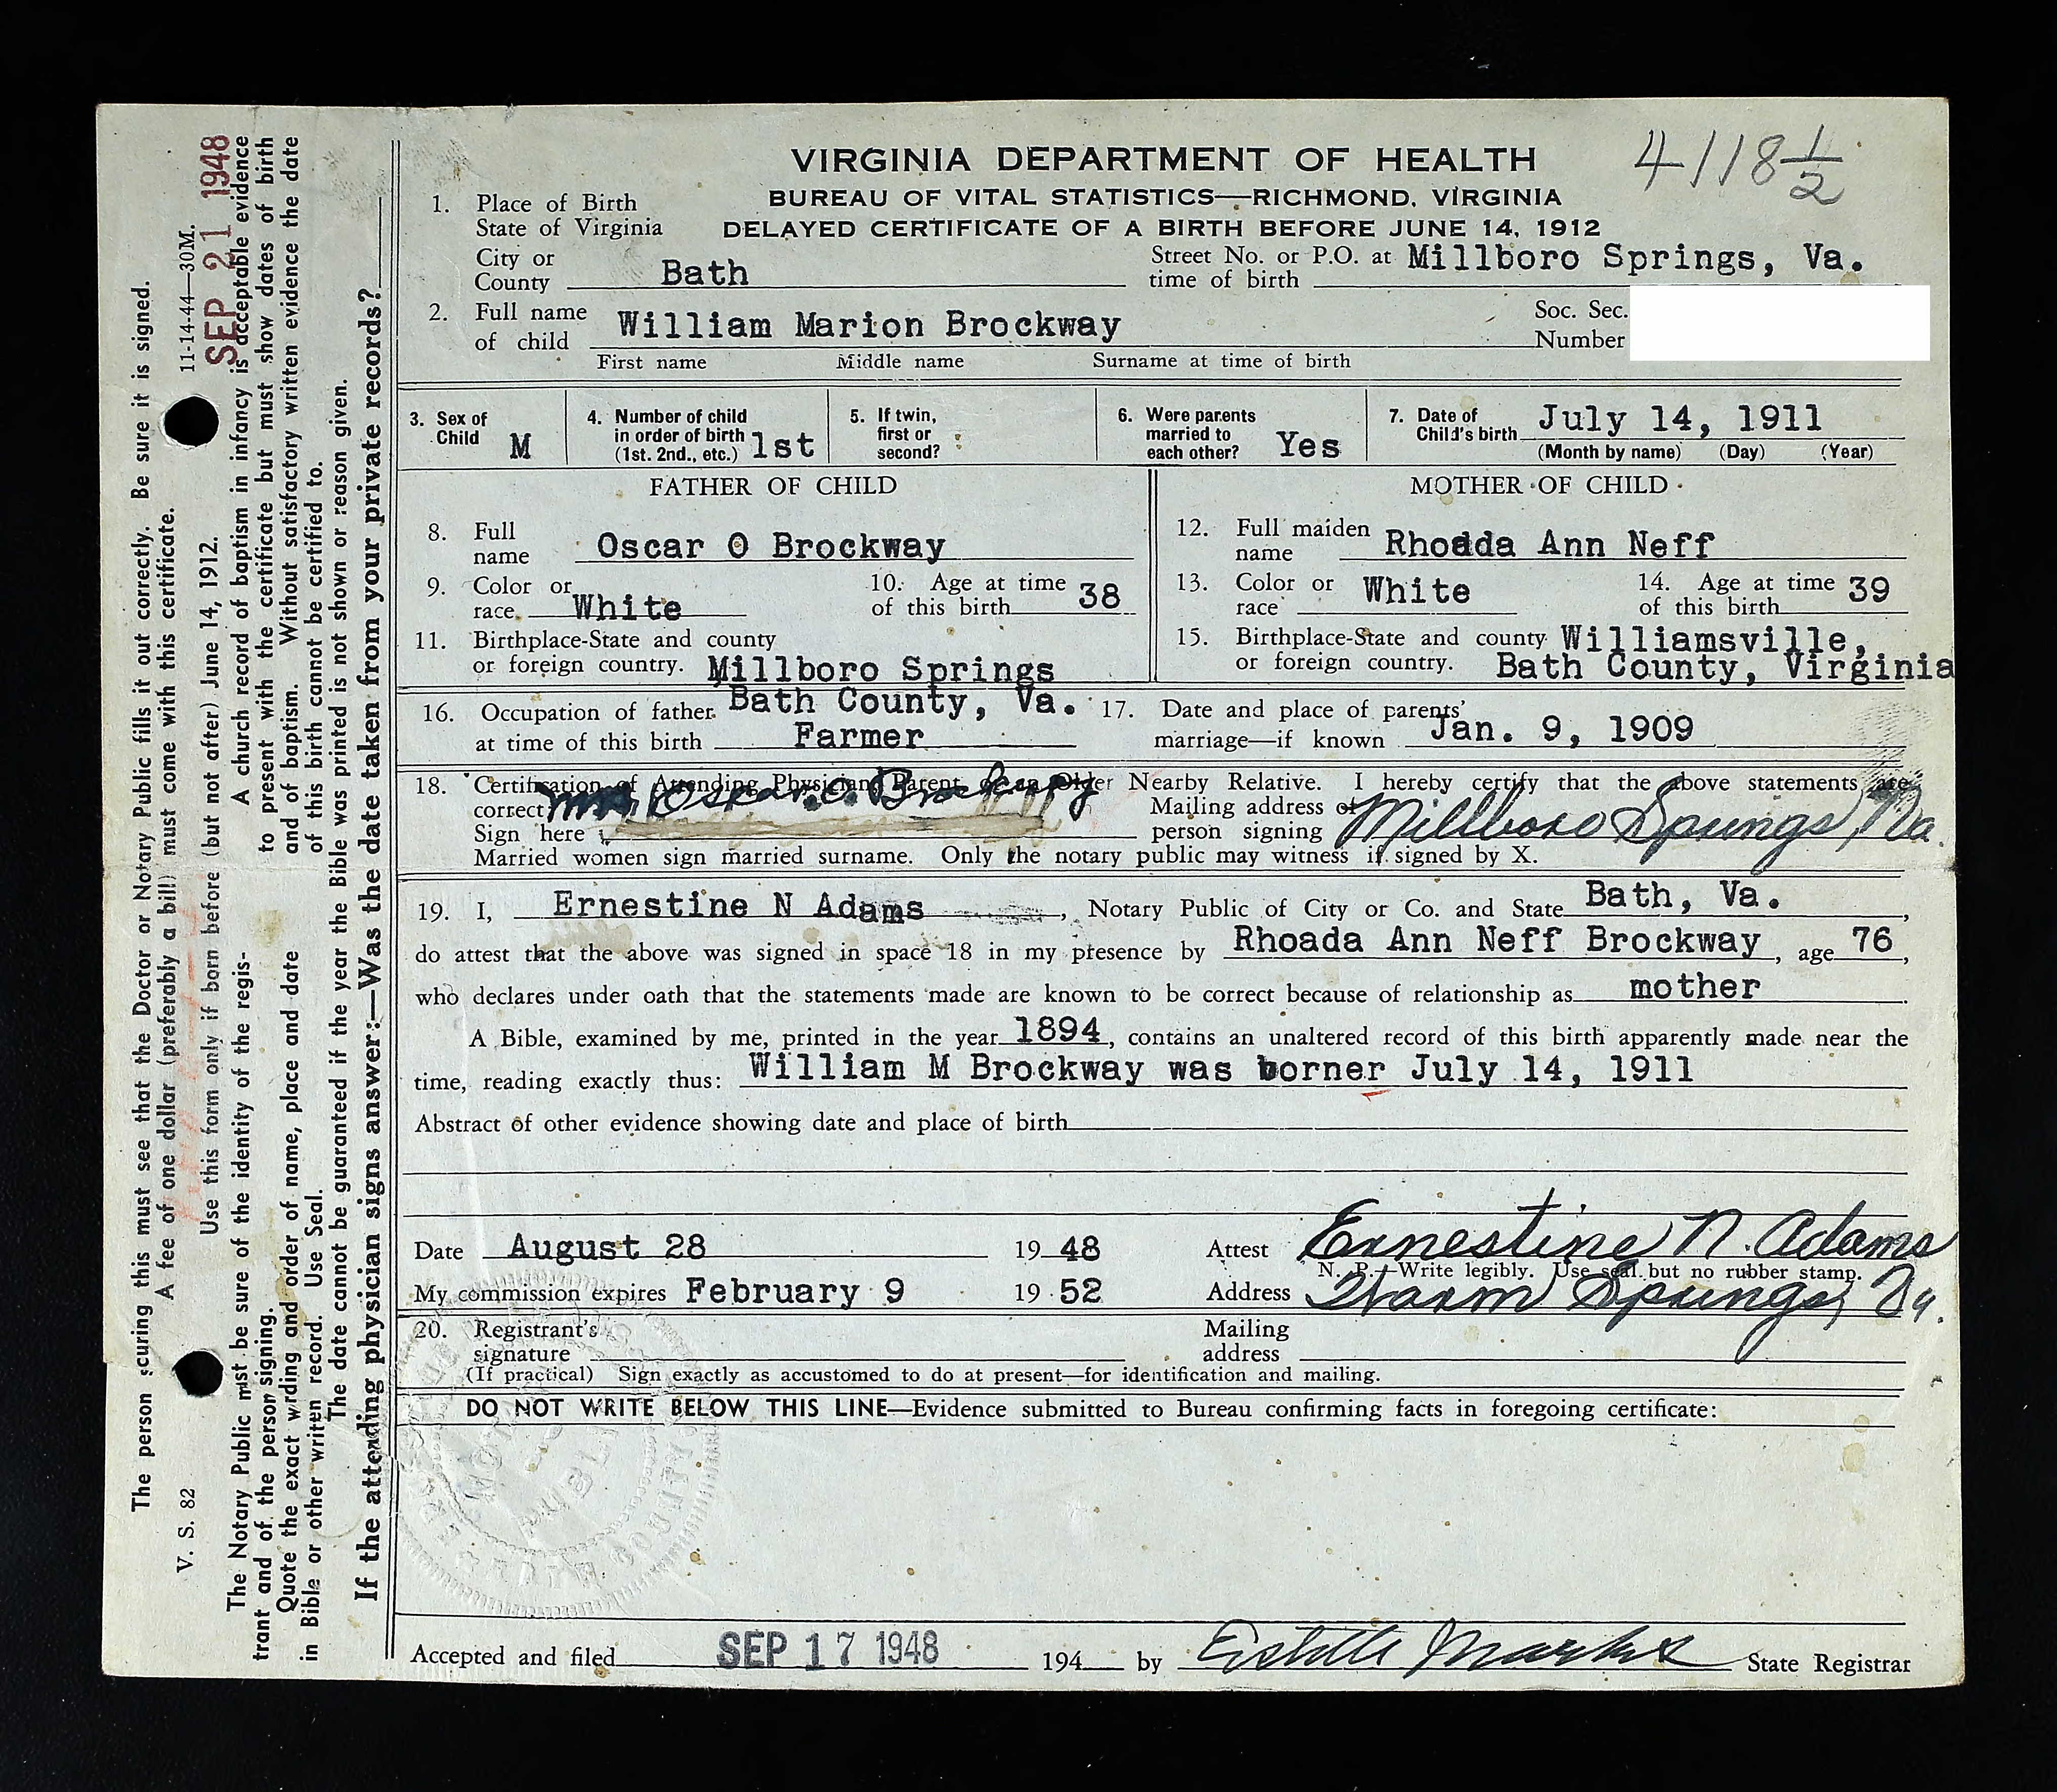 VIRGINIA DEPARTMENT OF HEALTH
BUREAU OF VITAL STATISTICS—RICHMOND, VIRGINIA
DELAYED CERTIFICATE OF A BIRTH BEFORE JUNE 14, 1912
4118 1/2
1. Place of Birth
State of Virginia
City or County Bath Street No. or P.O. at time of birth Millboro Springs, Va.
2. Full name of child William Marion Brockway Soc. Sec. Number
First name Middle name Surname at time of birth
3. Sex of Child M 4. Number of child in order of birth (1st. 2nd., etc.) 1st 5. If twin, first or second? 6. Were parents married to each other? Yes 7. Date of Child's birth July 14, 1911
(Month by name) (Day) (Year)
FATHER OF CHILD
8. Full name Oscar O Brockway
9. Color or race White 10. Age at time of this birth 38
11. Birthplace-State and county or foreign country. Millboro Springs
Bath County, Va.
MOTHER OF CHILD
12. Full maiden name Rhoada Ann Neff
13. Color or race White 14. Age at time of this birth 39
15. Birthplace-State and county or foreign country. Williamsville,
Bath County, Virginia
16. Occupation of father at time of this birth Farmer
17. Date and place of parents' marriage—if known Jan. 9, 1909
18. Certification of Attending Physician, Parent, or an Older Nearby Relative. I hereby certify that the above statements are
correct. Mrs. Oskar. O. Brockway
Sign here Mailing address of person signing Millboro Springs, Va.
Married women sign married surname. Only the notary public may witness if signed by X.
19. I, Ernestine N Adams, Notary Public of City or Co. and State Bath, Va.,
do attest that the above was signed in space 18 in my presence by Rhoada Ann Neff Brockway, age 76,
who declares under oath that the statements made are known to be correct because of relationship as mother.
A Bible, examined by me, printed in the year 1894, contains an unaltered record of this birth apparently made near the
time, reading exactly thus: William M Brockway was borner July 14, 1911
Abstract of other evidence showing date and place of birth
Date August 28 19 48 Attest Ernestine N. Adams
N. P.—Write legibly. Use seal but no rubber stamp.
My commission expires February 9 19 52 Address Warm Springs, Va.
20. Registrant's signature Mailing address
(If practical) Sign exactly as accustomed to do at present—for identification and mailing.
DO NOT WRITE BELOW THIS LINE—Evidence submitted to Bureau confirming facts in foregoing certificate:
Accepted and filed SEP 17 1948 194 by Estelle Marks State Registrar
The person securing this must see that the Doctor or Notary Public fills it out correctly. Be sure it is signed.
A fee of one dollar (preferably a bill) must come with this certificate.
V. S. 82 11-14-44—30M.
Use this form only if born before (but not after) June 14, 1912.
SEP 21 1948
The Notary Public must be sure of the identity of the regis-
trant and of the person signing.
Quote the exact wording and order of name, place and date
in Bible or other written record. Use Seal.
A church record of baptism in infancy is acceptable evidence
to present with the certificate but must show dates of birth
and of baptism. Without satisfactory written evidence the date
of this birth cannot be certified to.
The date cannot be guaranteed if the year the Bible was printed is not shown or reason given.
If the attending physician signs answer:—Was the date taken from your private records?